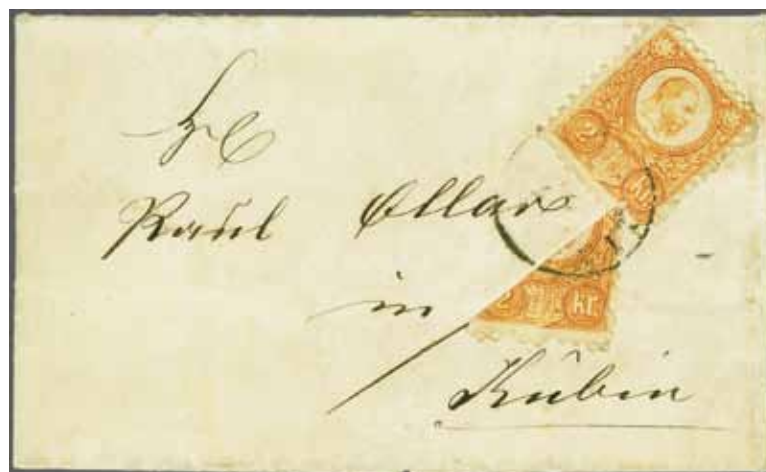 Paul Ollar
in
Kubin
2 kr.
2 kr.